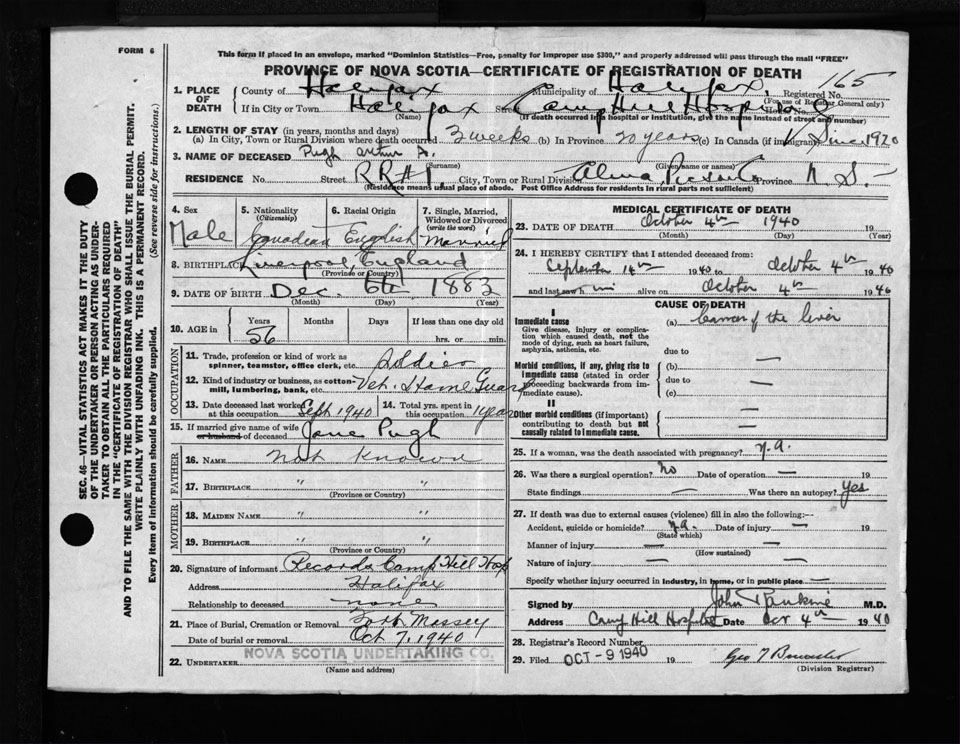 FORM 6
This form if placed in an envelope, marked "Dominion Statistics—Free, penalty for improper use $300," and properly addressed will pass through the mail "FREE"
PROVINCE OF NOVA SCOTIA—CERTIFICATE OF REGISTRATION OF DEATH
SEC. 46—VITAL STATISTICS ACT MAKES IT THE DUTY
OF THE UNDERTAKER OR PERSON ACTING AS UNDER-
TAKER TO OBTAIN ALL THE PARTICULARS REQUIRED
IN THE "CERTIFICATE OF REGISTRATION OF DEATH"
AND TO FILE THE SAME WITH THE DIVISION REGISTRAR WHO SHALL ISSUE THE BURIAL PERMIT.
WRITE PLAINLY WITH UNFADING INK. THIS IS A PERMANENT RECORD.
Every item of information should be carefully supplied. (See reverse side for instructions.)
1. PLACE OF DEATH County of Halifax Municipality of Halifax Registered No. 165
(For use of Registrar General only)
If in City or Town Halifax Street Camp Hill Hospital House No.
(Name) (If death occurred in a hospital or institution, give the name instead of street and number)
2. LENGTH OF STAY (in years, months and days)
(a) In City, Town or Rural Division where death occurred 3 weeks (b) In Province 20 years (c) In Canada (if immigrant) Since 1920
3. NAME OF DECEASED Pugh Arthur
(Surname) (Given name or names)
RESIDENCE No. Street RR#1. City, Town or Rural Division Alma Pictou Co Province N.S.
(Residence means usual place of abode. Post Office Address for residents in rural parts not sufficient)
4. Sex Male
5. Nationality (Citizenship) Canadian
6. Racial Origin English
7. Single, Married, Widowed or Divorced (write the word) Married
8. BIRTHPLACE Liverpool, England
(Province or Country)
9. DATE OF BIRTH Dec. 6th 1883
(Month) (Day) (Year)
10. AGE in Years Months Days If less than one day old
56 hrs. or min.
OCCUPATION
11. Trade, profession or kind of work as spinner, teamster, office clerk, etc. Soldier
12. Kind of industry or business, as cotton-mill, lumbering, bank, etc. Vet. Home Guard
13. Date deceased last worked at this occupation Sept 1940
14. Total yrs. spent in this occupation 1 year
15. If married give name of wife or husband of deceased Jane Pugh
FATHER
16. NAME Not Known
17. BIRTHPLACE " "
(Province or Country)
MOTHER
18. MAIDEN NAME " "
19. BIRTHPLACE " "
(Province or Country)
20. Signature of informant Records Camp Hill Hosp
Address Halifax
Relationship to deceased none
21. Place of Burial, Cremation or Removal Fort Massey
Date of burial or removal Oct 7, 1940
22. UNDERTAKER NOVA SCOTIA UNDERTAKING CO.
(Name and address)
MEDICAL CERTIFICATE OF DEATH
23. DATE OF DEATH October 4th 1940 19
(Month) (Day) (Year)
24. I HEREBY CERTIFY that I attended deceased from:
September 14th 1940 to October 4th 1940
and last saw him alive on October 4th 1940
CAUSE OF DEATH
I
Immediate cause (a) Cancer of the liver
Give disease, injury or complication which caused death, not the mode of dying, such as heart failure, asphyxia, asthenia, etc.
due to —
Morbid conditions, if any, giving rise to immediate cause (stated in order proceeding backwards from immediate cause).
(b)
due to —
(c)
II
Other morbid conditions (if important) contributing to death but not causally related to immediate cause.
25. If a woman, was the death associated with pregnancy? n.a.
26. Was there a surgical operation? No Date of operation — 19
State findings — Was there an autopsy? yes
27. If death was due to external causes (violence) fill in also the following:—
Accident, suicide or homicide? n.a. Date of injury — 19
(State which)
Manner of injury — —
(How sustained)
Nature of injury —
Specify whether injury occurred in industry, in home, or in public place —
Signed by John Rankine M.D.
Address Camp Hill Hospital Date Oct 4th 1940
28. Registrar's Record Number
29. Filed OCT - 9 1940 19 Geo T
(Division Registrar)